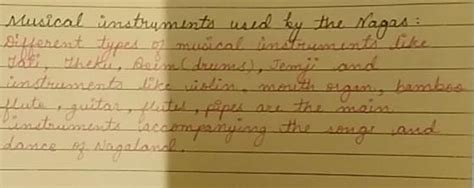 Musical instruments used by the Nagas:
Different types of musical instruments like
Tati, Theku, Beim (drums), Jemji and
instruments like violin, mouth organ, bamboo
flute, guitar, flutes, pipes are the main
instruments accompanying the songs and
dance of Nagaland.